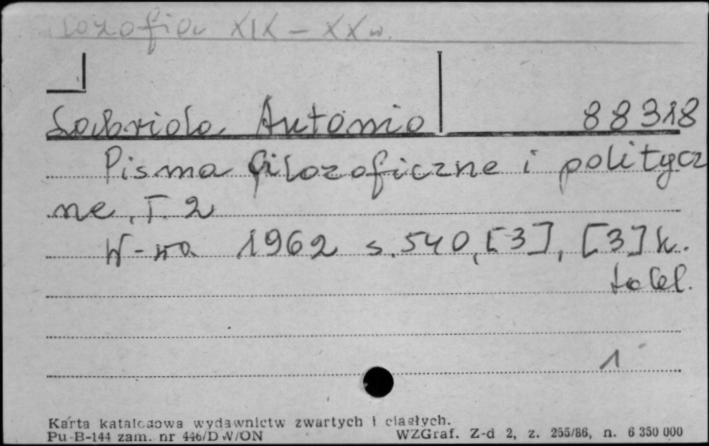 lozofia XIX - XX w.
Labriola Antonio 88318
Pisma filozoficzne i politycz
ne, T. 2
W-wa 1962 s. 540, [3], [3] k.
tabl.
1
Karta katalogowa wydawnictw zwartych i ciągłych.
Pu-B-144 zam. nr 446/DW/ON WZGraf. Z-d 2, z. 255/86, n. 6 350 000